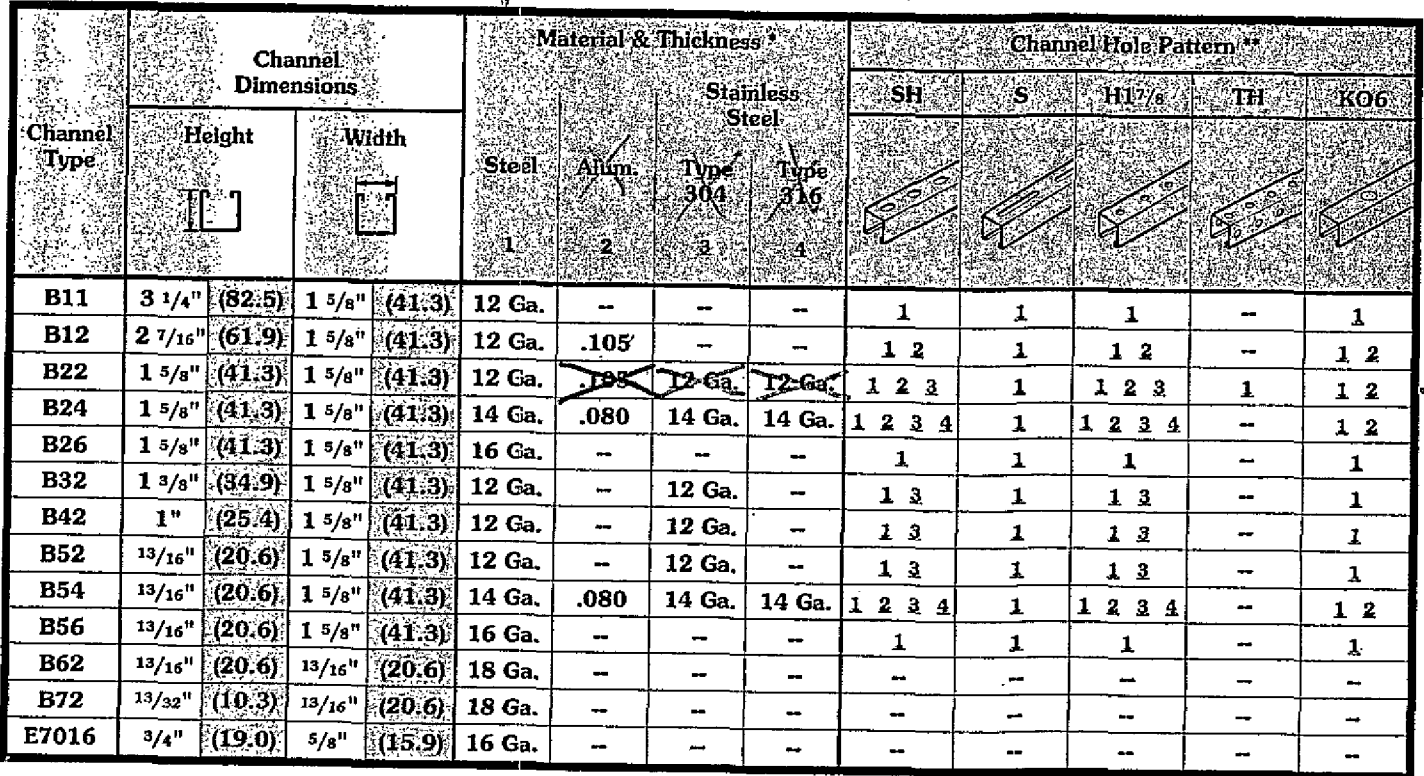 Material & Thickness * Channel Hole Pattern **
Channel Dimensions
Stainless Steel
SH S H1 7/8 TH KO6
Channel Type Height Width Steel Alum. Type 304 Type 316
1 2 3 4
B11 3 1/4" (82.5) 1 5/8" (41.3) 12 Ga. -- -- -- 1 1 1 -- 1
B12 2 7/16" (61.9) 1 5/8" (41.3) 12 Ga. .105 -- -- 1 2 1 1 2 -- 1 2
B22 1 5/8" (41.3) 1 5/8" (41.3) 12 Ga. .105 12 Ga. 12 Ga. 1 2 3 1 1 2 3 1 1 2
B24 1 5/8" (41.3) 1 5/8" (41.3) 14 Ga. .080 14 Ga. 14 Ga. 1 2 3 4 1 1 2 3 4 -- 1 2
B26 1 5/8" (41.3) 1 5/8" (41.3) 16 Ga. -- -- -- 1 1 1 -- 1
B32 1 3/8" (34.9) 1 5/8" (41.3) 12 Ga. -- 12 Ga. -- 1 3 1 1 3 -- 1
B42 1" (25.4) 1 5/8" (41.3) 12 Ga. -- 12 Ga. -- 1 3 1 1 3 -- 1
B52 13/16" (20.6) 1 5/8" (41.3) 12 Ga. -- 12 Ga. -- 1 3 1 1 3 -- 1
B54 13/16" (20.6) 1 5/8" (41.3) 14 Ga. .080 14 Ga. 14 Ga. 1 2 3 4 1 1 2 3 4 -- 1 2
B56 13/16" (20.6) 1 5/8" (41.3) 16 Ga. -- -- -- 1 1 1 -- 1
B62 13/16" (20.6) 13/16" (20.6) 18 Ga. -- -- -- -- -- -- -- --
B72 13/32" (10.3) 13/16" (20.6) 18 Ga. -- -- -- -- -- -- -- --
E7016 3/4" (19.0) 5/8" (15.9) 16 Ga. -- -- -- -- -- -- -- --